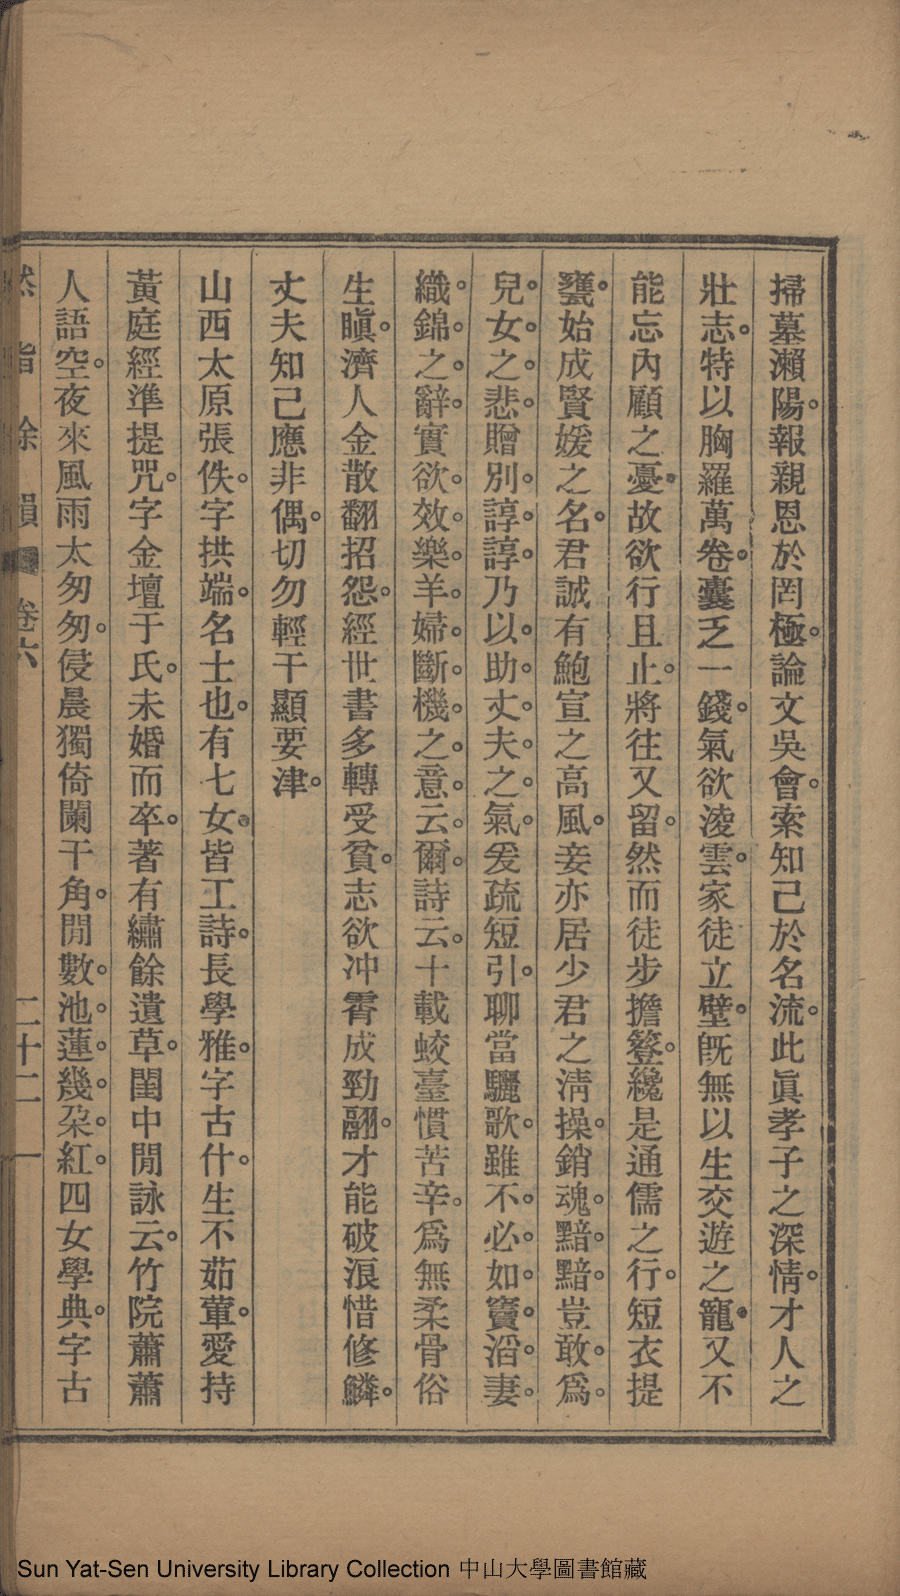 掃墓瀨陽。報親恩於罔極。論文吳會。索知己於名流。此眞孝子之深情。才人之
壯志。特以胸羅萬卷。囊乏一錢。氣欲淩雲。家徒立壁。旣無以生交遊之寵。又不
能忘內顧之憂。故欲行且止。將往又留。然而徒步擔簦。纔是通儒之行。短衣提
甕。始成賢媛之名。君誠有鮑宣之高風。妾亦居少君之淸操。銷魂。黯。黯。豈敢。爲。
兒。女。之。悲。贈別。諄。諄。乃以。助。丈。夫。之。氣。爰疏短引。聊當驪歌。雖不。必。如。竇。滔。妻。
織。錦。之。辭。實欲。效。樂。羊。婦。斷。機。之。意。云。爾。詩云。十載蛟臺慣苦辛。爲無柔骨俗
生瞋。濟人金散翻招怨。經世書多轉受貧。志欲冲霄成勁翮。才能破浪惜修鱗。
丈夫知己應非偶。切勿輕干顯要津。
山西太原張佚。字拱端。名士也。有七女。皆工詩。長學雅。字古什。生不茹葷。愛持
黃庭經準提咒。字金壇于氏。未婚而卒。著有繡餘遺草。閨中閒詠云。竹院蕭蕭
人語空。夜來風雨太匆匆。侵晨獨倚闌干角。閒數。池。蓮。幾。朶。紅。四女學典。字古
然脂餘韻 卷六 二十二
Sun Yat-Sen University Library Collection 中山大學圖書館藏